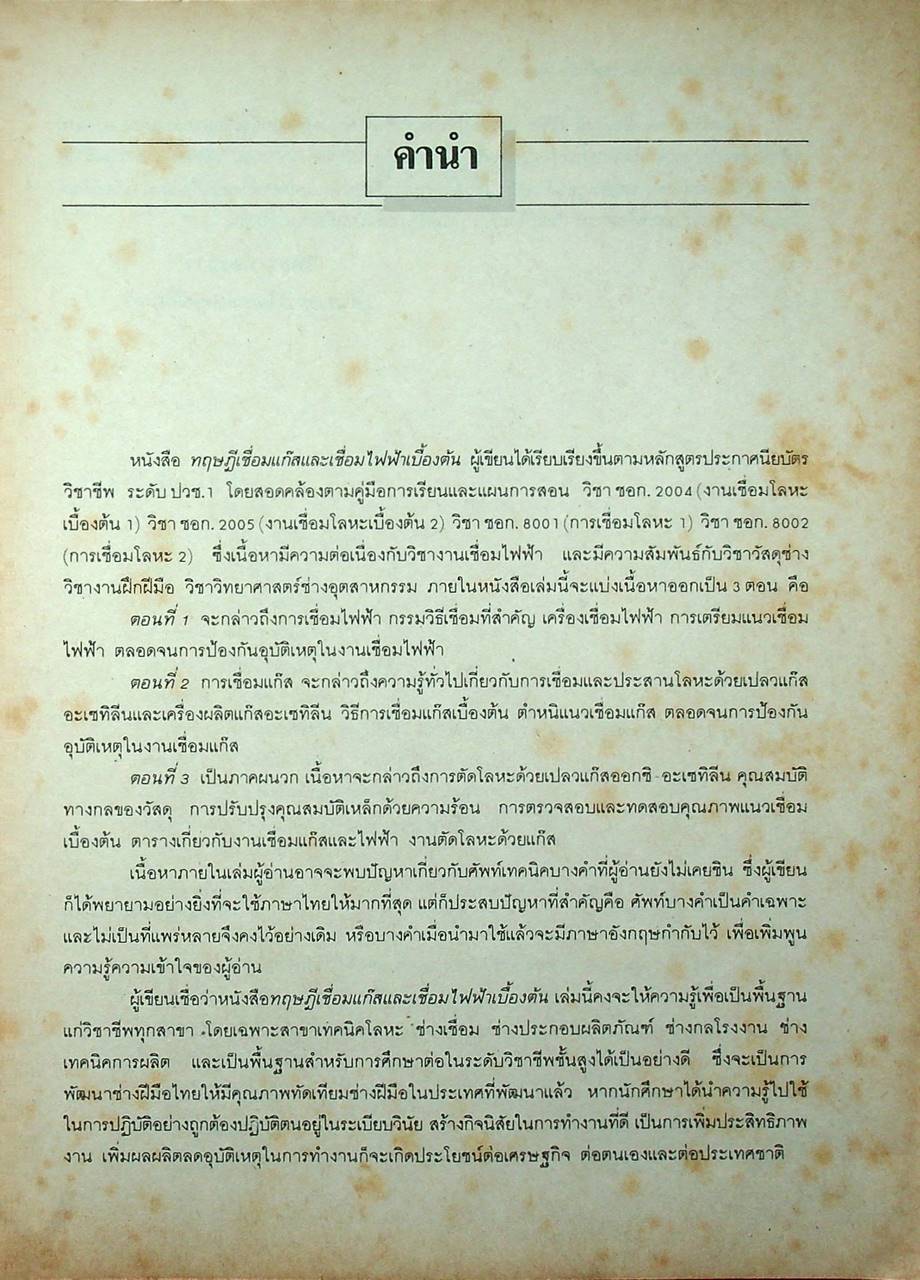 คำนำ
หนังสือ ทฤษฎีเชื่อมแก๊สและเชื่อมไฟฟ้าเบื้องต้น ผู้เขียนได้เรียบเรียงขึ้นตามหลักสูตรประกาศนียบัตร
วิชาชีพ ระดับ ปวช.1 โดยสอดคล้องตามคู่มือการเรียนและแผนการสอน วิชา ชอก. 2004 (งานเชื่อมโลหะ
เบื้องต้น 1) วิชา ชอก. 2005 (งานเชื่อมโลหะเบื้องต้น 2) วิชา ชอก. 8001 (การเชื่อมโลหะ 1) วิชา ชอก. 8002
(การเชื่อมโลหะ 2) ซึ่งเนื้อหามีความต่อเนื่องกับวิชางานเชื่อมไฟฟ้า และมีความสัมพันธ์กับวิชาวัสดุช่าง
วิชางานฝึกฝีมือ วิชาวิทยาศาสตร์ช่างอุตสาหกรรม ภายในหนังสือเล่มนี้จะแบ่งเนื้อหาออกเป็น 3 ตอน คือ
ตอนที่ 1 จะกล่าวถึงการเชื่อมไฟฟ้า กรรมวิธีเชื่อมที่สำคัญ เครื่องเชื่อมไฟฟ้า การเตรียมแนวเชื่อม
ไฟฟ้า ตลอดจนการป้องกันอุบัติเหตุในงานเชื่อมไฟฟ้า
ตอนที่ 2 การเชื่อมแก๊ส จะกล่าวถึงความรู้ทั่วไปเกี่ยวกับการเชื่อมและประสานโลหะด้วยเปลวแก๊ส
อะเซทิลีนและเครื่องผลิตแก๊สอะเซทิลีน วิธีการเชื่อมแก๊สเบื้องต้น ตำหนิแนวเชื่อมแก๊ส ตลอดจนการป้องกัน
อุบัติเหตุในงานเชื่อมแก๊ส
ตอนที่ 3 เป็นภาคผนวก เนื้อหาจะกล่าวถึงการตัดโลหะด้วยเปลวแก๊สออกซิ-อะเซทิลีน คุณสมบัติ
ทางกลของวัสดุ การปรับปรุงคุณสมบัติเหล็กด้วยความร้อน การตรวจสอบและทดสอบคุณภาพแนวเชื่อม
เบื้องต้น ตารางเกี่ยวกับงานเชื่อมแก๊สและไฟฟ้า งานตัดโลหะด้วยแก๊ส
เนื้อหาภายในเล่มผู้อ่านอาจจะพบปัญหาเกี่ยวกับศัพท์เทคนิคบางคำที่ผู้อ่านยังไม่เคยชิน ซึ่งผู้เขียน
ก็ได้พยายามอย่างยิ่งที่จะใช้ภาษาไทยให้มากที่สุด แต่ก็ประสบปัญหาที่สำคัญคือ ศัพท์บางคำเป็นคำเฉพาะ
และไม่เป็นที่แพร่หลายจึงคงไว้อย่างเดิม หรือบางคำเมื่อนำมาใช้แล้วจะมีภาษาอังกฤษกำกับไว้ เพื่อเพิ่มพูน
ความรู้ความเข้าใจของผู้อ่าน
ผู้เขียนเชื่อว่าหนังสือทฤษฎีเชื่อมแก๊สและเชื่อมไฟฟ้าเบื้องต้น เล่มนี้คงจะให้ความรู้เพื่อเป็นพื้นฐาน
แก่วิชาชีพทุกสาขา โดยเฉพาะสาขาเทคนิคโลหะ ช่างเชื่อม ช่างประกอบผลิตภัณฑ์ ช่างกลโรงงาน ช่าง
เทคนิคการผลิต และเป็นพื้นฐานสำหรับการศึกษาต่อในระดับวิชาชีพชั้นสูงได้เป็นอย่างดี ซึ่งจะเป็นการ
พัฒนาช่างฝีมือไทยให้มีคุณภาพทัดเทียมช่างฝีมือในประเทศที่พัฒนาแล้ว หากนักศึกษาได้นำความรู้ไปใช้
ในการปฏิบัติอย่างถูกต้องปฏิบัติตนอยู่ในระเบียบวินัย สร้างกิจนิสัยในการทำงานที่ดี เป็นการเพิ่มประสิทธิภาพ
งาน เพิ่มผลผลิตลดอุบัติเหตุในการทำงานก็จะเกิดประโยชน์ต่อเศรษฐกิจ ต่อตนเองและต่อประเทศชาติ